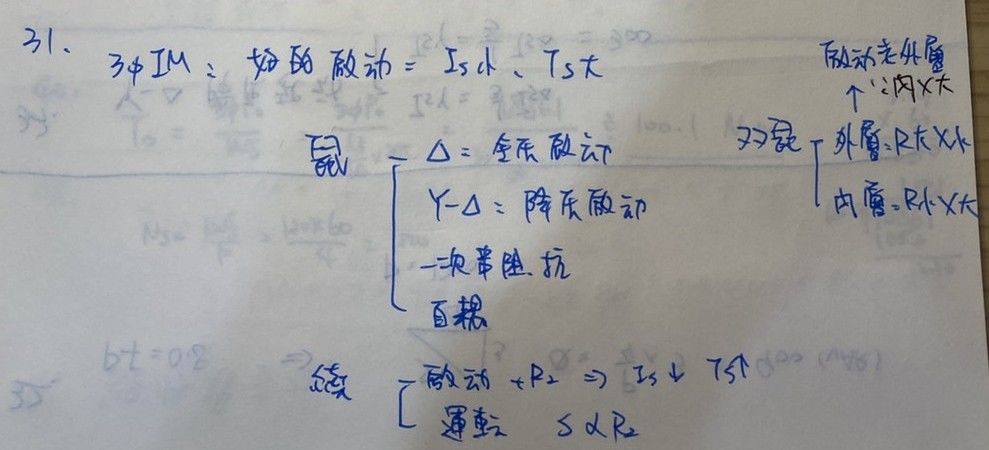 31.
3ϕIM: 好的啟动 = Is小、Ts大
鼠
Δ = 全压啟动
Y-Δ: 降压啟动
一次串阻抗
啟动走外層
↑ ∵内X大
双鼠
外層:R大X小
内層:R小X大
繞
啟动 +R₂ ⇒ Is↓ Ts↑
運転 S∝R₂